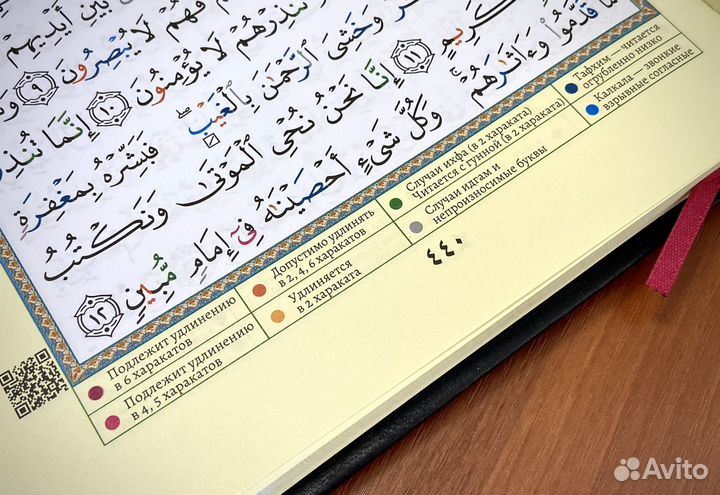 بَيْنِ أَيْدِيهِمْ
فَهُمْ لَا يُبْصِرُونَ ٩
تُنذِرْهُمْ لَا يُؤْمِنُونَ ١٠ إِنَّمَا تُنذِرُ
وَخَشِىَ ٱلرَّحْمَٰنَ بِٱلْغَيْبِ ۖ فَبَشِّرْهُ بِمَغْفِرَةٍ
كَرِيمٍ ١١ إِنَّا نَحْنُ نُحْىِ ٱلْمَوْتَىٰ وَنَكْتُبُ
مَا قَدَّمُوا۟ وَءَاثَٰرَهُمْ ۚ وَكُلَّ شَىْءٍ أَحْصَيْنَٰهُ فِىٓ إِمَامٍ مُّبِينٍ ١٢
Подлежит удлинению
в 6 харакатов
Подлежит удлинению
в 4, 5 харакатов
Допустимо удлинять
в 2, 4, 6 харакатов
Удлиняется
в 2 хараката
Случаи ихфа (в 2 хараката)
Читается с гунной (в 2 хараката)
Случаи идгам и
непроизносимые буквы
Тафхим — читается
огрубленно низко
Калкала — звонкие
взрывные согласные
٤٤٠
Avito